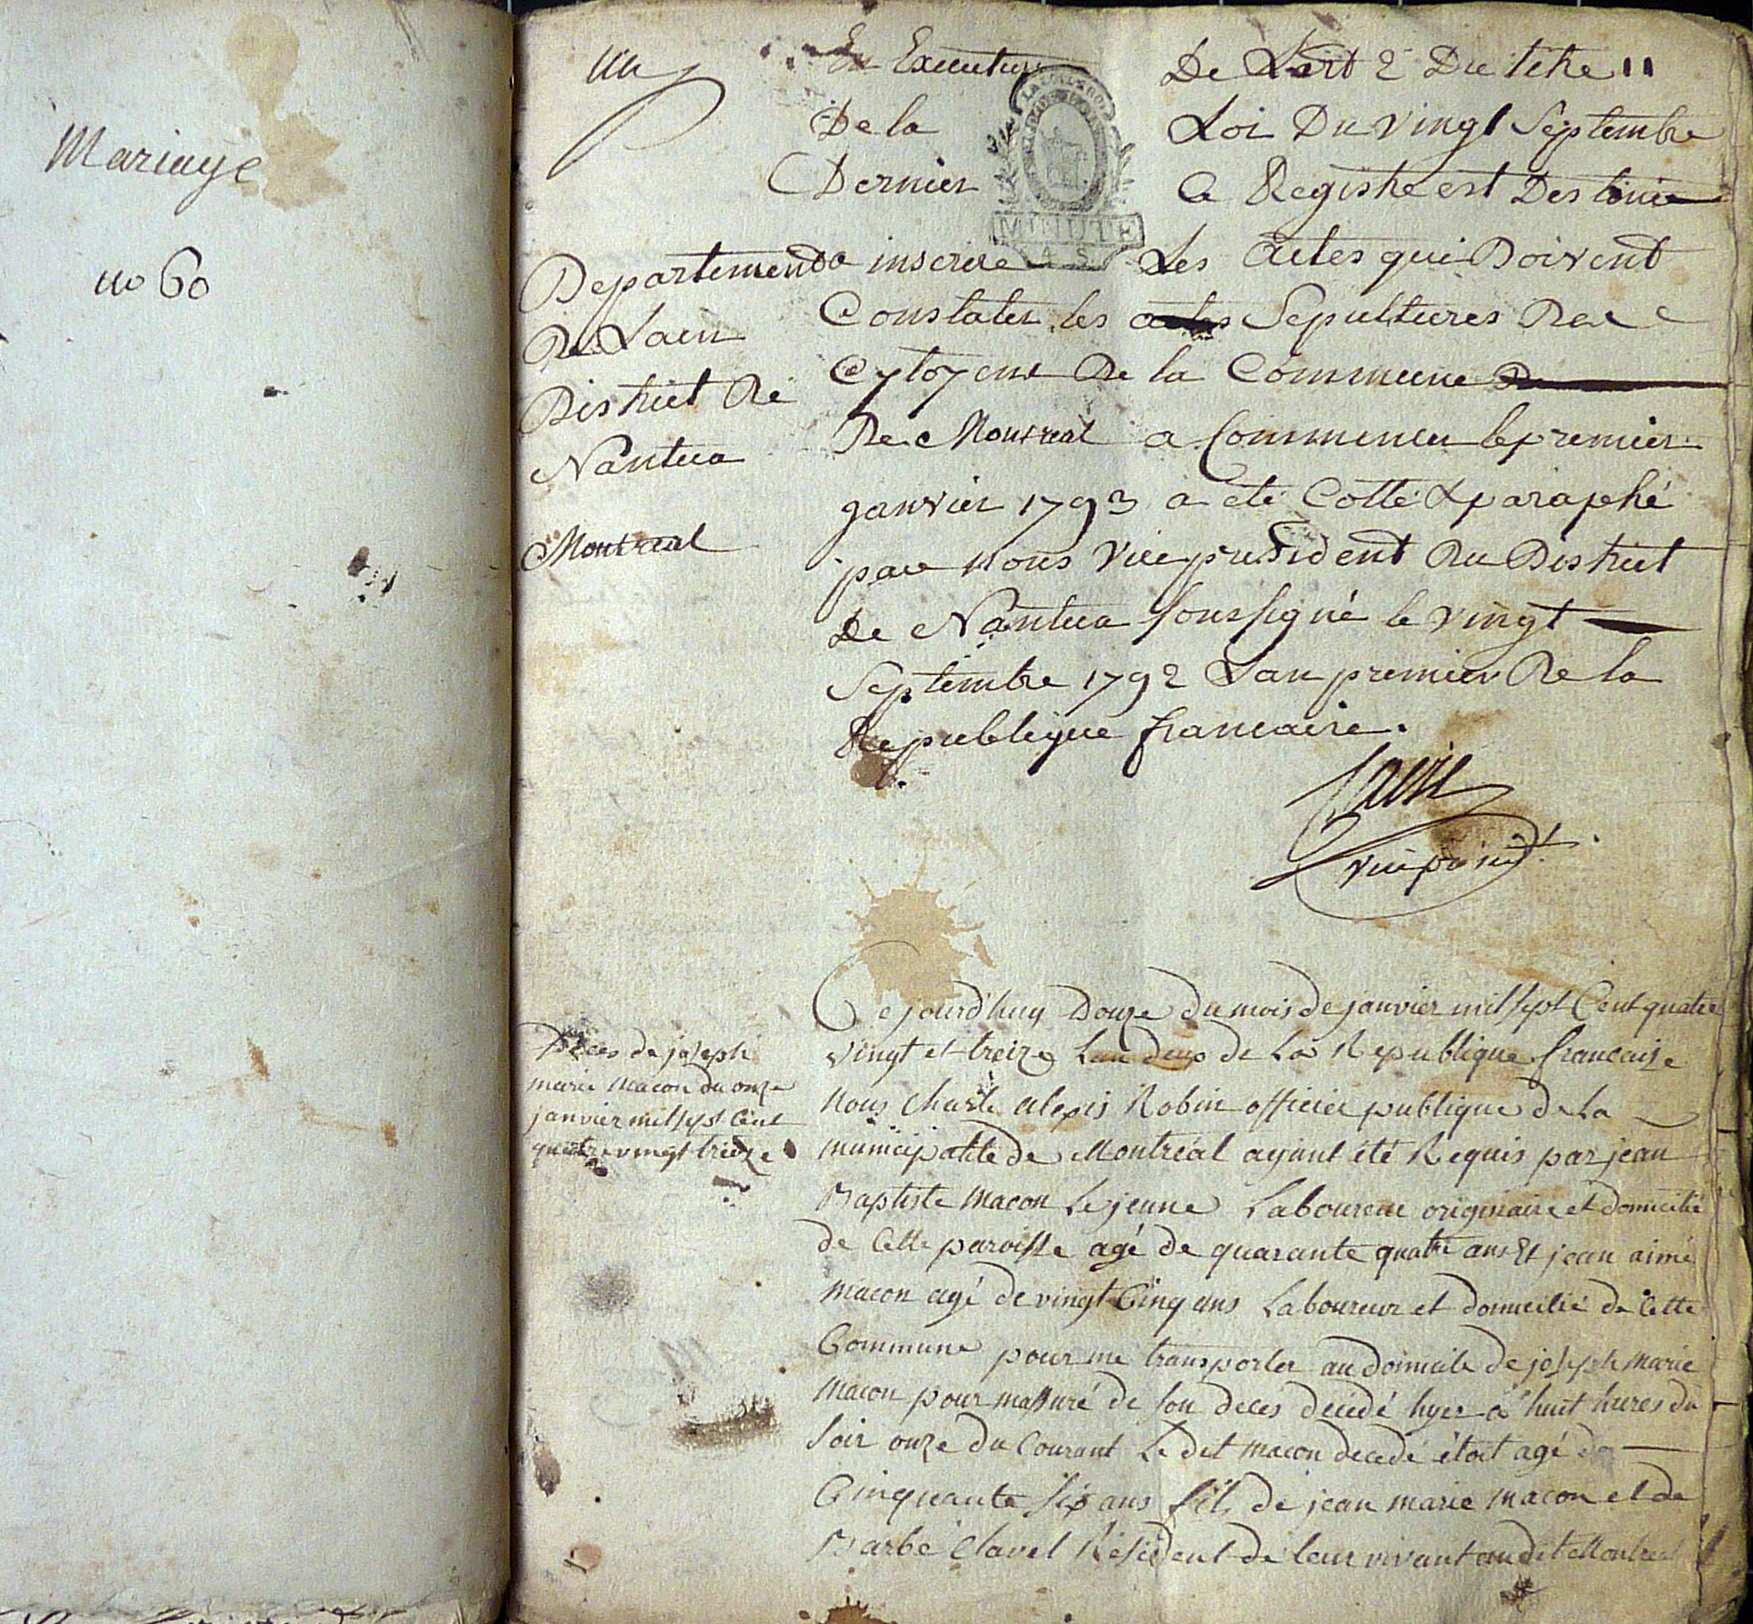 Mariage
no 60
un
En Execution De Lart 2 Du titre 11
De la Loi Du vingt Septembre
Dernier Ce Registre est Destinée
a inscrire Les actes qui Doivent
Constater les actes Sepultures Des
Cytoyens De la Commune De
De Montreal a Commencer le premier
janvier 1793 a eté Cotté & paraphé
par nous Vice president Du District
De Nantua soussigné le vingt
Septembre 1792 Lan premier De la
Republique francaise.
Departement
De Lain
District De
Nantua
Montreal
vice
MINUTE
4 S.
Deces de joseph
marie macon du onze
janvier mil sept Cent
quatre vingt treize
Cejourd'huy Douze du mois de janvier mil sept Cent quatre
vingt et treize Lan deux de La Republique francaise
Nous Charle alexis Robin officier publique de La
municipalité de Montréal ayant été Requis par jean
Baptiste macon Le jeune Laboureur originaire et domicilié
de Cette paroisse agé de quarante quatre ans Et jean aimé
macon agé de vingt Cinq ans Laboureur et domicilié de Cette
Commune pour me transporter au domicile de joseph marie
macon pour massuré de son deces décédé hyer a huit hures du
soir onze du Courant Le dit macon decedé étoit agé de
Cinquante six ans fils de jean marie macon et de
Barbe Clavel Résident de leur vivant au dit Montreal